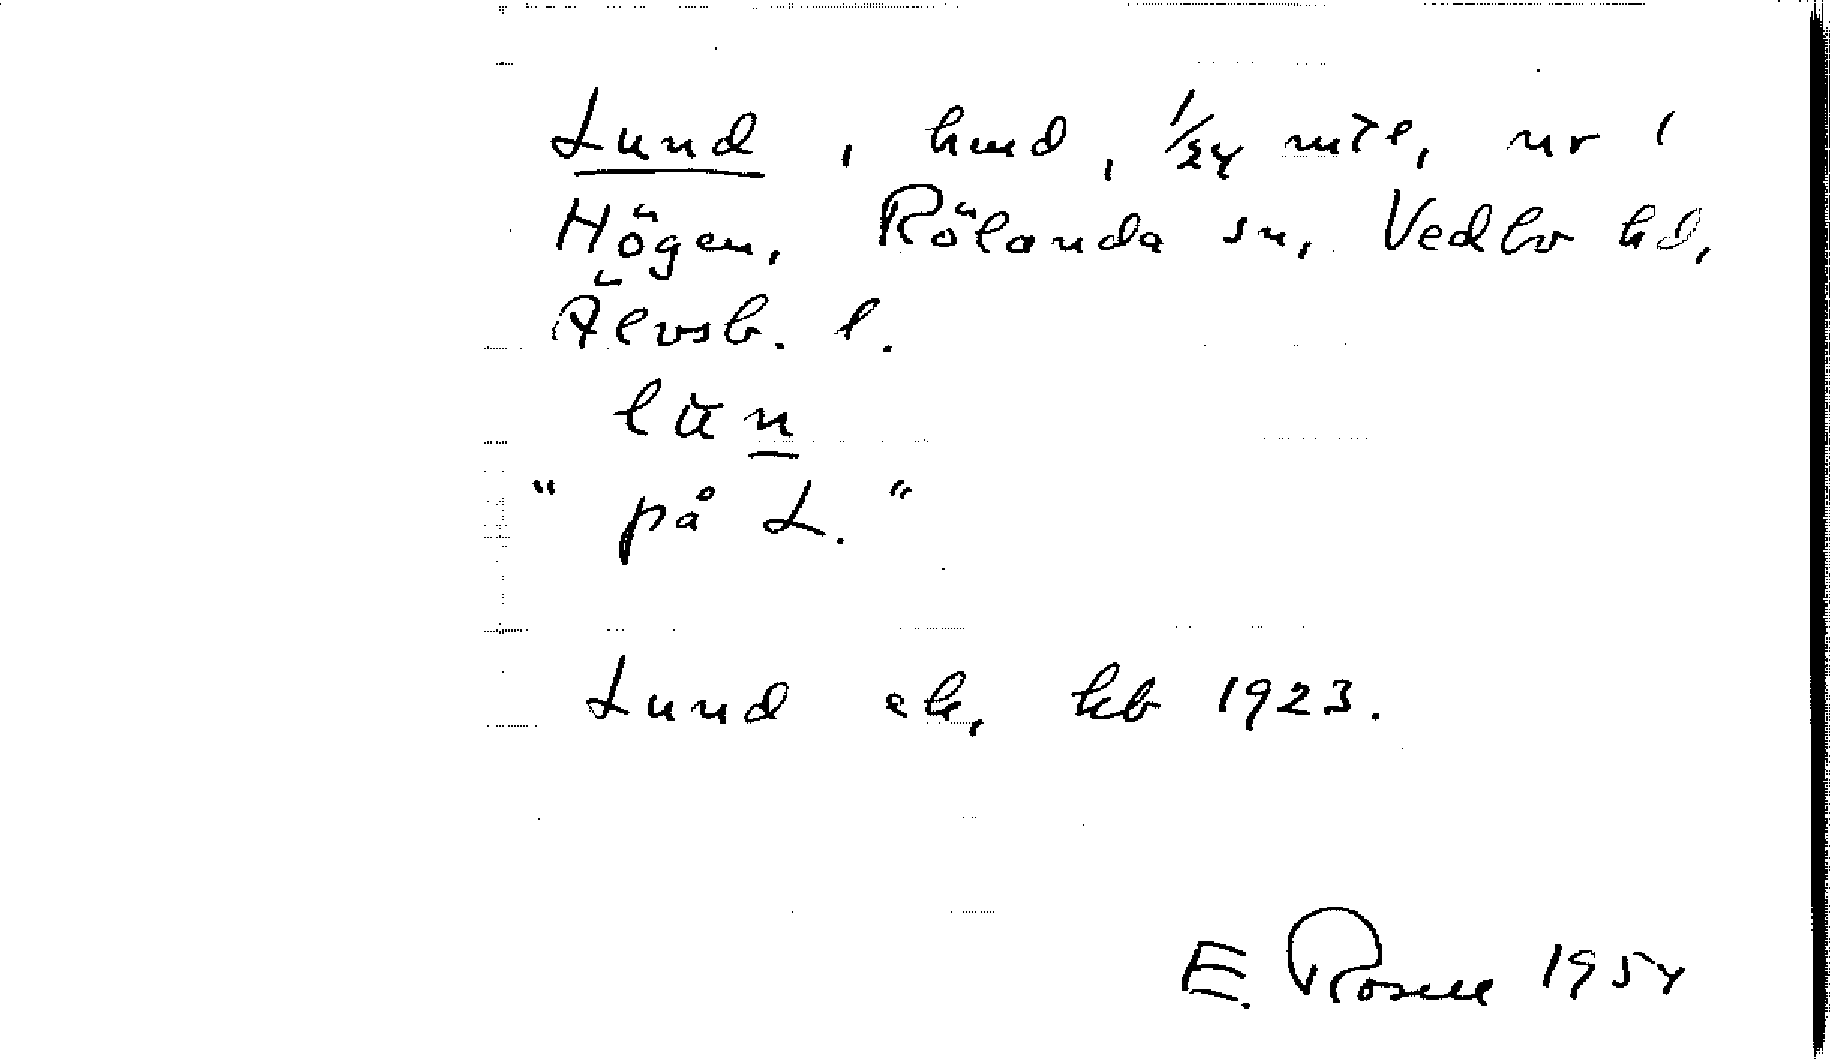 Lund, hmd, 1/24 mtl, nr 1
Högen, Rölanda sn, Vedbo hd,
Älvsb. l.
lun
"på L."
Lund ek, kb 1923.
E. Rosell 1954